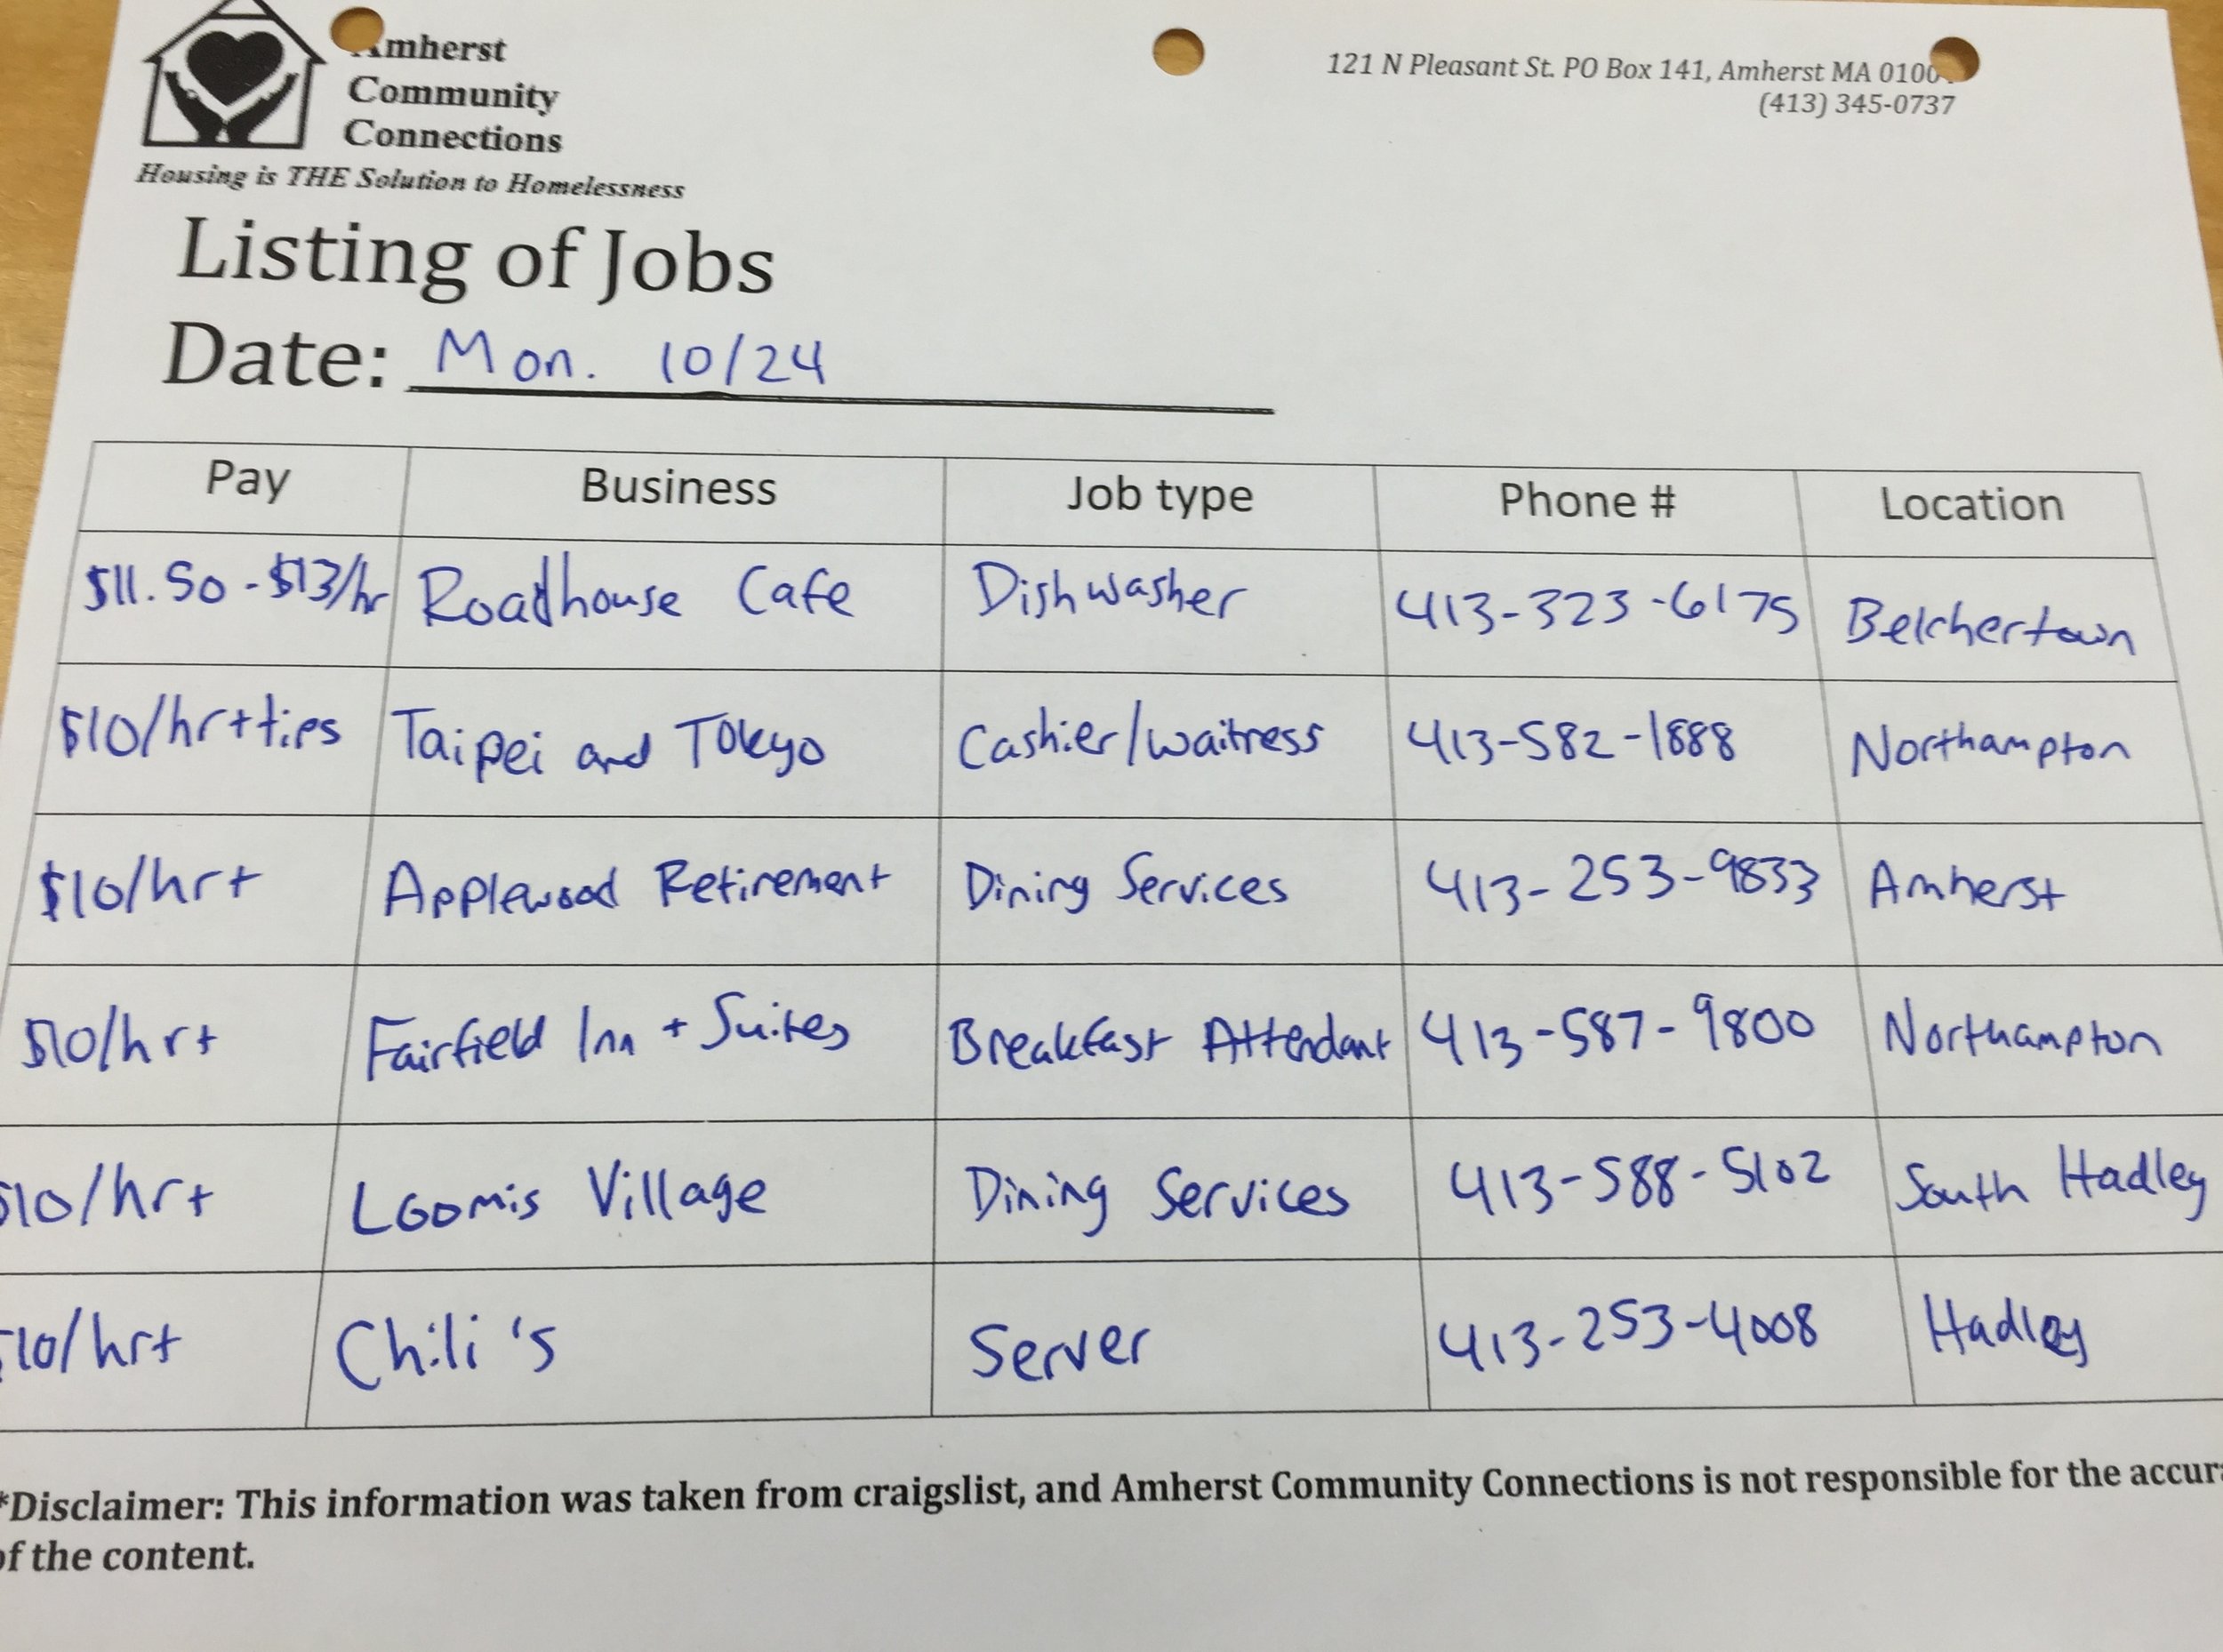 Amherst
Community
Connections
Housing is THE Solution to Homelessness
121 N Pleasant St. PO Box 141, Amherst MA 0100
(413) 345-0737
Listing of Jobs
Date: Mon. 10/24
Pay Business Job type Phone # Location
$11.50-$13/hr Roadhouse Cafe Dishwasher 413-323-6175 Belchertown
$10/hr+tips Taipei and Tokyo Cashier/waitress 413-582-1888 Northampton
$10/hr+ Applewood Retirement Dining Services 413-253-9833 Amherst
$10/hr+ Fairfield Inn + Suites Breakfast Attendant 413-587-9800 Northampton
$10/hr+ Loomis Village Dining Services 413-588-5102 South Hadley
$10/hr+ Chili's Server 413-253-4008 Hadley
*Disclaimer: This information was taken from craigslist, and Amherst Community Connections is not responsible for the accur
of the content.